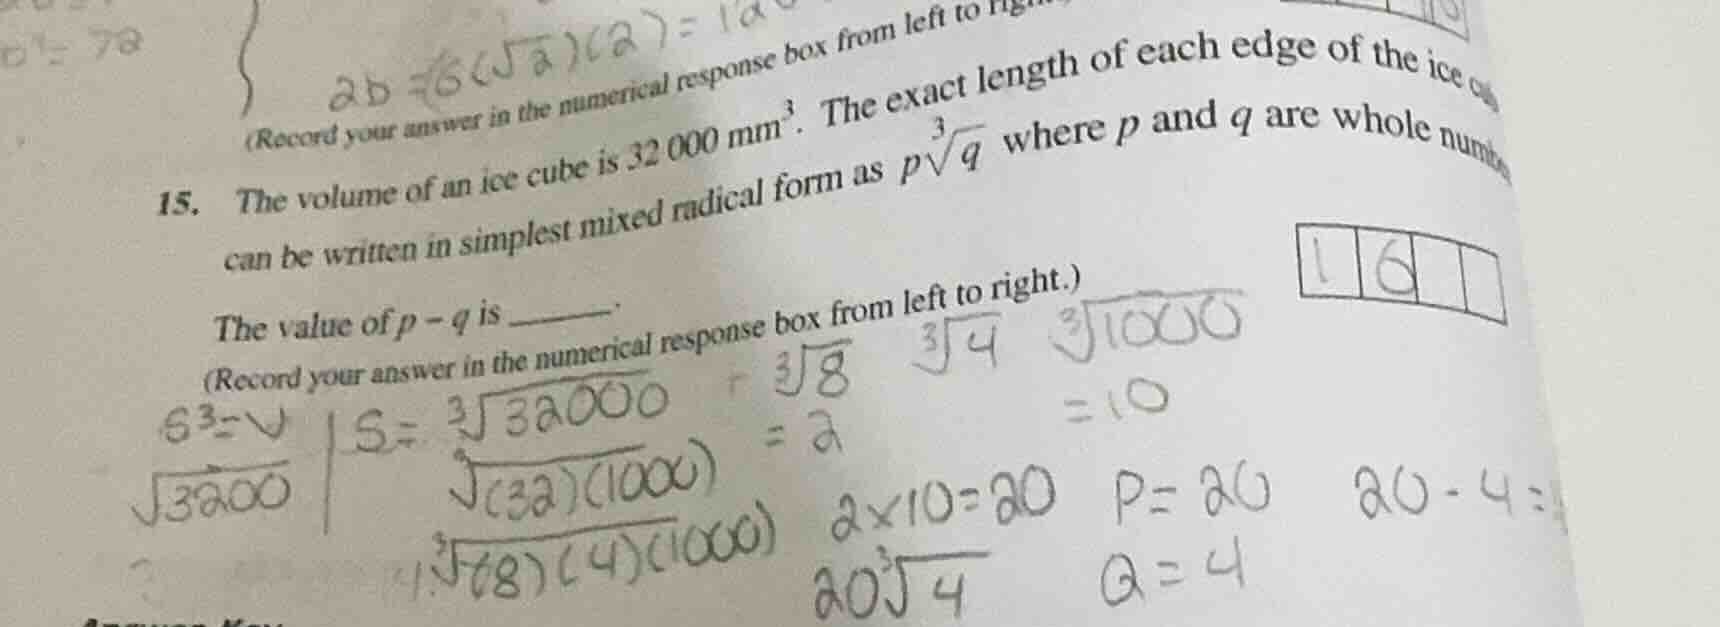 = 72
2b = 6(√2)(2) = 12
(Record your answer in the numerical response box from left to
15. The volume of an ice cube is 32 000 mm³. The exact length of each edge of the ice
can be written in simplest mixed radical form as p∛q where p and q are whole
The value of p – q is ______.
(Record your answer in the numerical response box from left to right.)
1 6
S³=V
S= ∛32000
∛8
∛4
∛1000
= 2
= 10
√3200
√(32)(1000)
2x10=20
P= 20
20 - 4 =
∛(8)(4)(1000)
20∛4
Q = 4
Answer Key